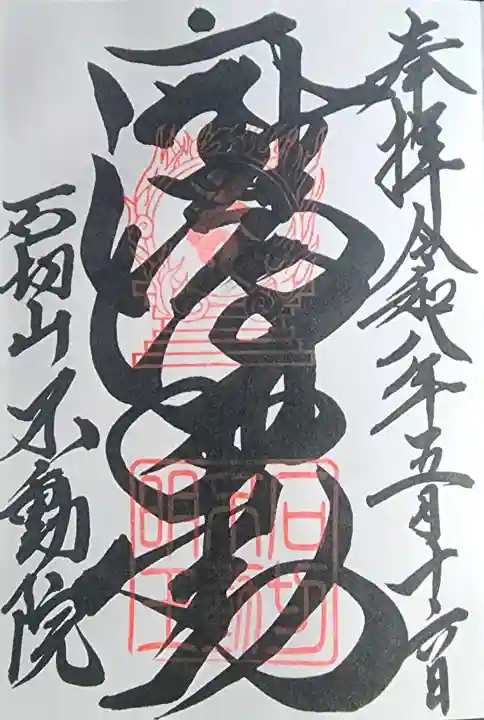 奉拝 令和八年五月十六日
石切
不動
明王
石切山 不動院